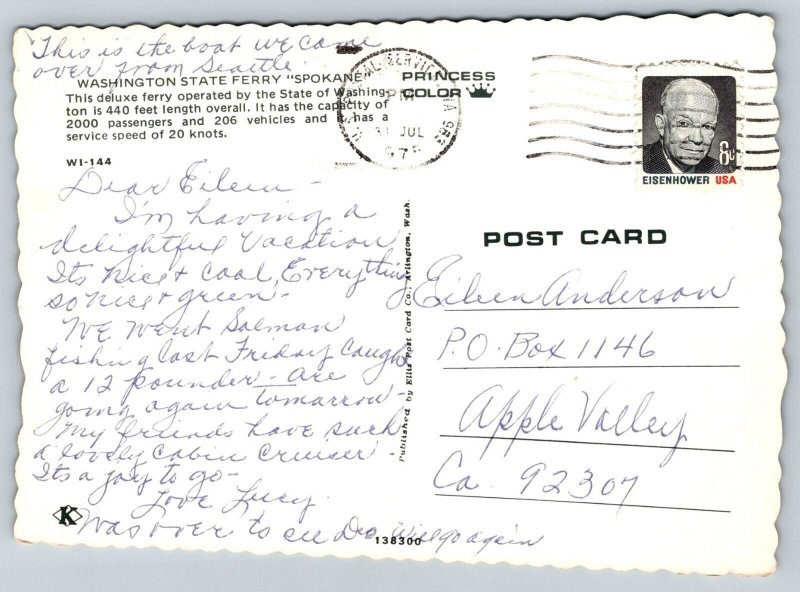 This is the boat we came
over from Seattle
WASHINGTON STATE FERRY "SPOKANE"
This deluxe ferry operated by the State of Washing-
ton is 440 feet length overall. It has the capacity of
2000 passengers and 206 vehicles and it has a
service speed of 20 knots.
WI-144
PRINCESS
COLOR
31 JUL
EISENHOWER USA
6c
Dear Eileen -
I'm having a
delightful Vacation
Its nice + Cool, Everything
so nice + green -
We went Salmon
fishing last Friday Caught
a 12 pounder - are
going again tomarrow -
My friends have such
a lovely Cabin Cruiser -
Its a joy to go -
Love Lucy
Was over to see Will go again
K
138300
Published by Ellis Post Card Co., Arlington, Wash.
POST CARD
Eileen Anderson
P.O. Box 1146
Apple Valley
Ca. 92307